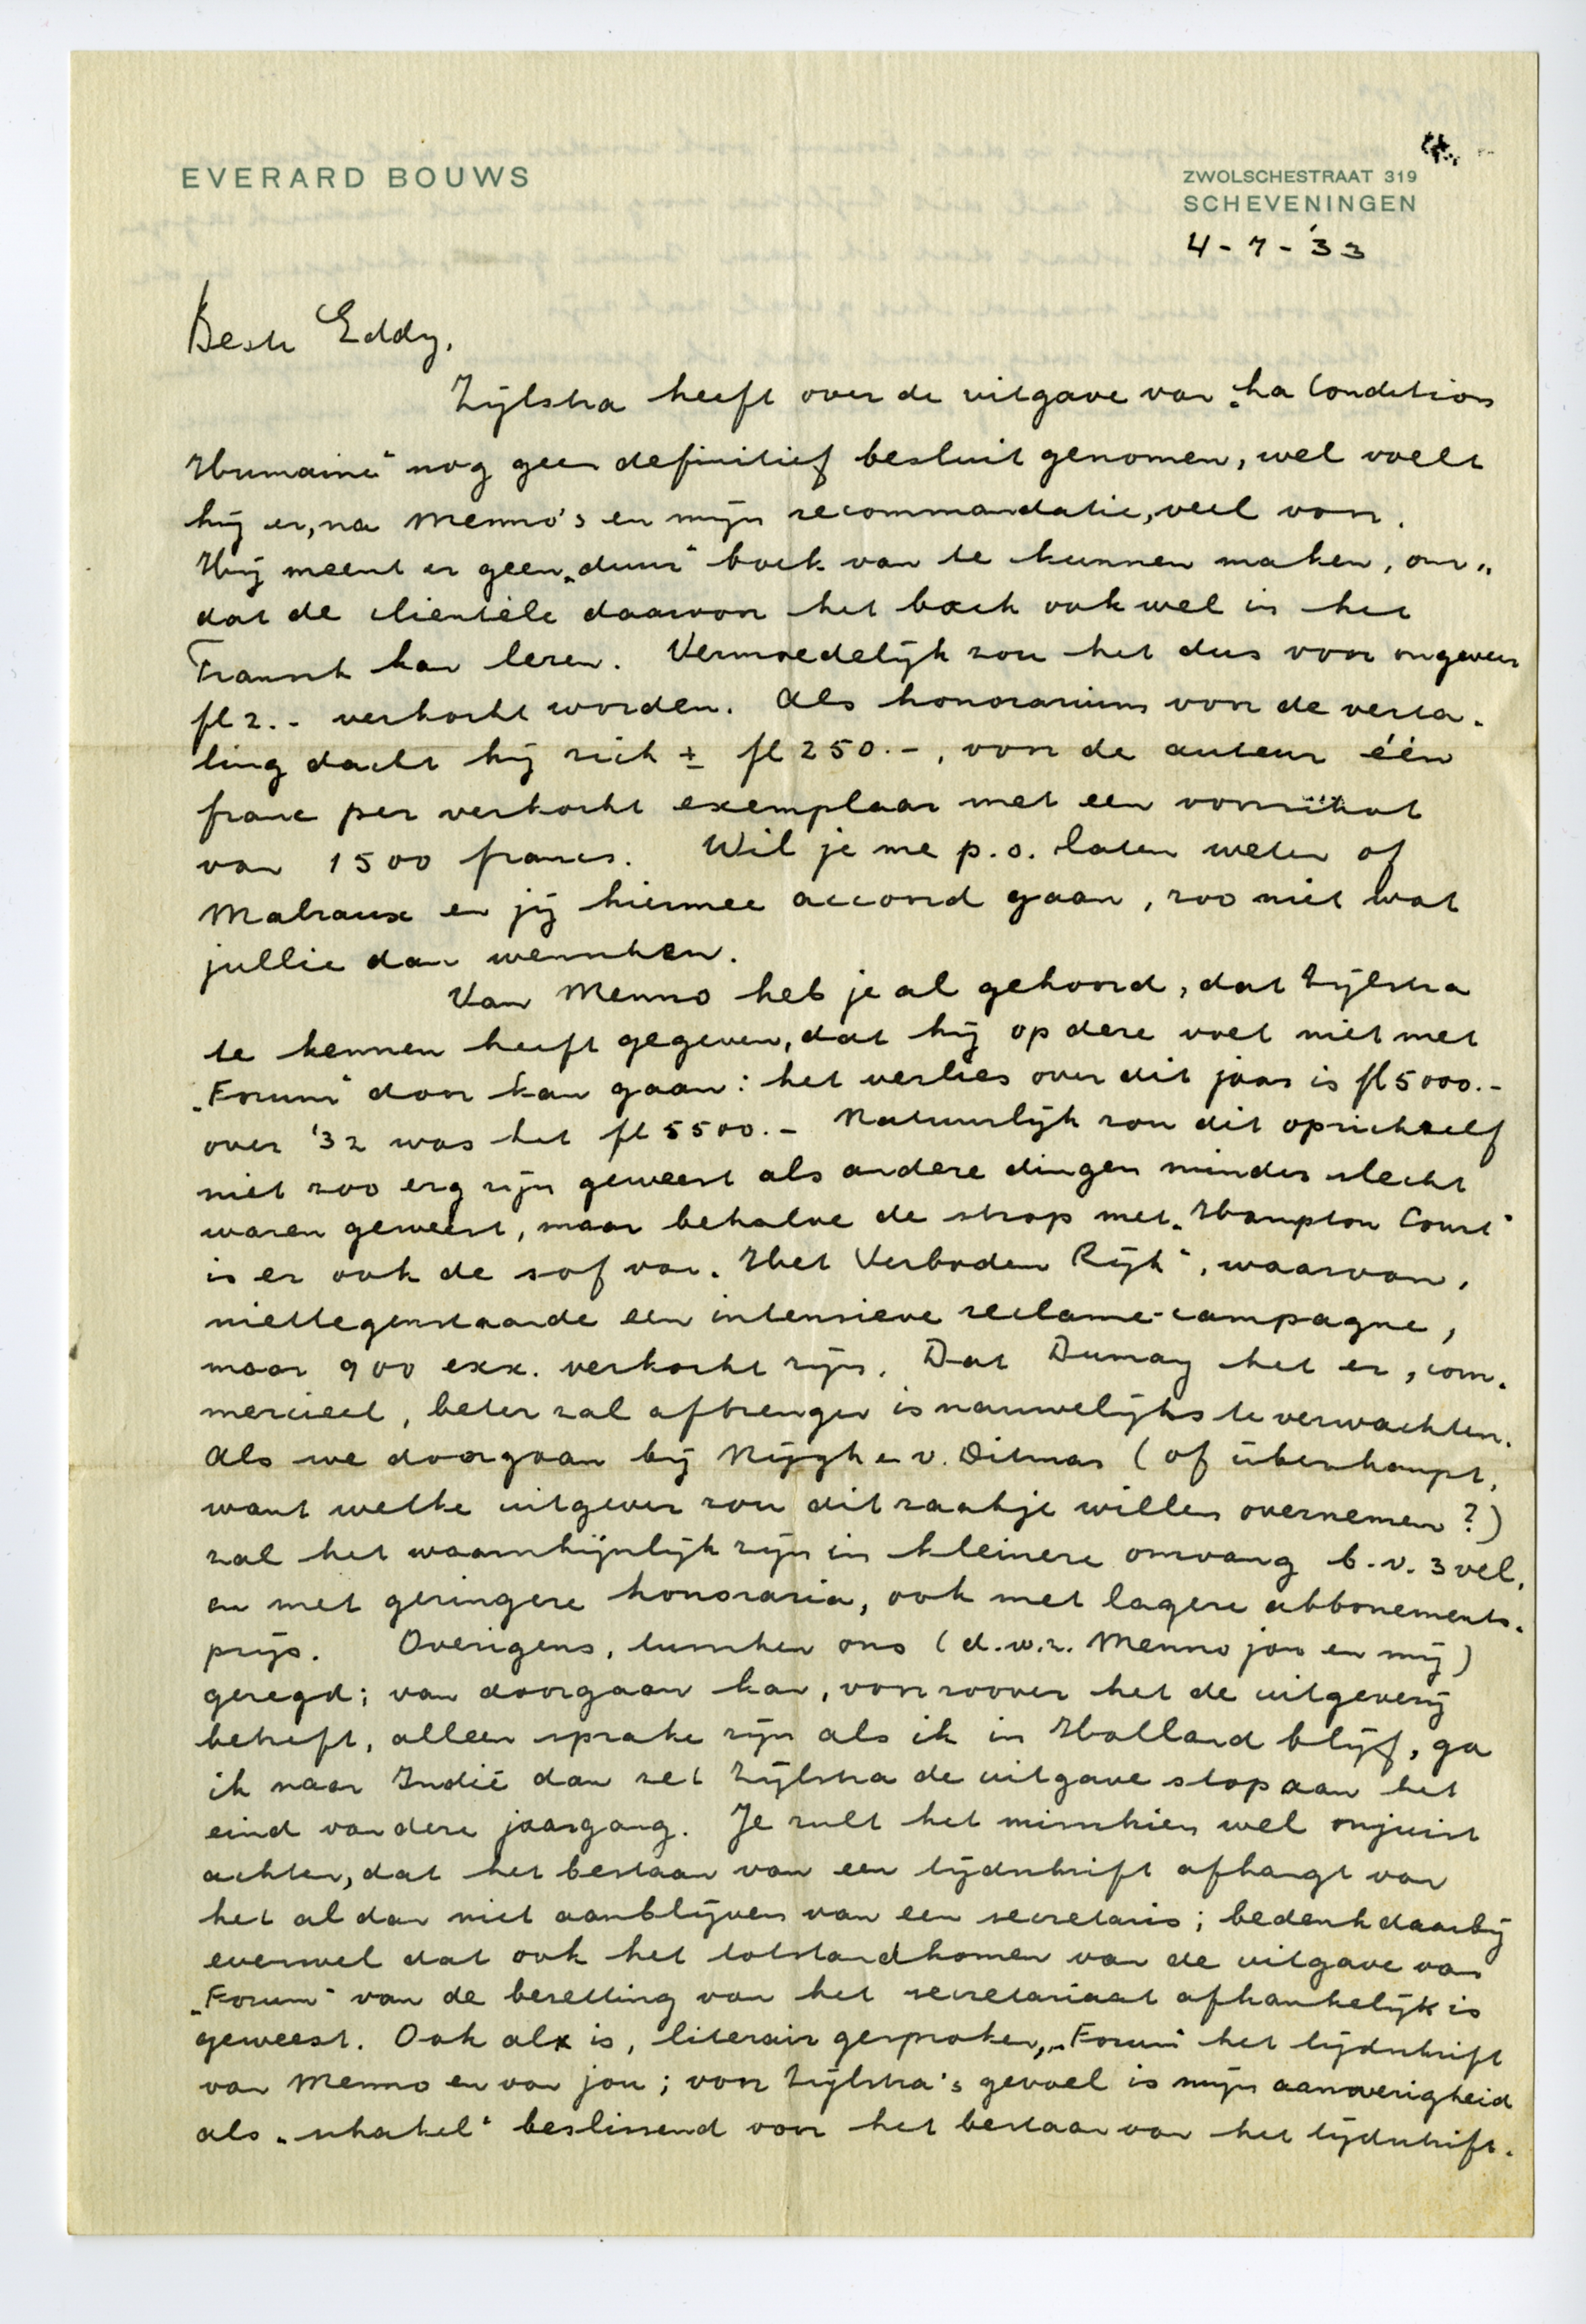 EVERARD BOUWS
ZWOLSCHESTRAAT 319
SCHEVENINGEN
4-7-'33
Beste Eddy,
Zijlstra heeft over de uitgave van „La Condition
Humaine" nog geen definitief besluit genomen, wel voelt
hij er, na Menno's en mijn recommandatie, veel voor.
Hij meent er geen „duur" boek van te kunnen maken, om„
dat de clientèle daarvoor het boek ook wel in het
Fransch kan lezen. Vermoedelijk zou het dus voor ongeveer
fl 2.- verkocht worden. Als honorarium voor de verta-
ling dacht hij zich ± fl 250.-, voor de auteur één
franc per verkocht exemplaar met een voorschot
van 1500 francs. Wil je me p.o. laten weten of
Malraux en jij hiermee accoord gaan, zoo niet wat
jullie dan wenschen.
Van Menno heb je al gehoord, dat Zijlstra
te kennen heeft gegeven, dat hij op deze voet niet met
„Forum" door kan gaan: het verlies over dit jaar is fl 5000.-
over '32 was het fl 5500.- Natuurlijk zou dit opzichzelf
niet zoo erg zijn geweest als andere dingen minder slecht
waren geweest, maar behalve de strop met „Hampton Court"
is er ook de sof van „Het Verboden Rijk", waarvan,
niettegenstaande een intensieve reclame-campagne,
maar 900 exx. verkocht zijn. Dat Dumay het er, com-
mercieel, beter zal afbrengen is nauwelijks te verwachten.
Als we doorgaan bij Nijgh en v. Ditmar (of überhaupt,
want welke uitgever zou dit zaakje willen overnemen?)
zal het waarschijnlijk zijn in kleinere omvang b.v. 3 vel,
en met geringere honoraria, ook met lagere abbonements-
prijs. Overigens, tusschen ons (d.w.z. Menno jou en mij)
gezegd; van doorgaan kan, voorzoover het de uitgeverij
betreft, alleen sprake zijn als ik in Holland blijf, ga
ik naar Indië dan zet Zijlstra de uitgave stop aan het
eind van deze jaargang. Je zult het misschien wel onjuist
achten, dat het bestaan van een tijdschrift afhangt van
het al dan niet aanblijven van een secretaris; bedenk daarbij
evenwel dat ook het totstandkomen van de uitgave van
„Forum" van de bezetting van het secretariaat afhankelijk is
geweest. Ook al is, literair gesproken, „Forum" het tijdschrift
van Menno en van jou; voor Zijlstra's gevoel is mijn aanwezigheid
als „schakel" beslissend voor het bestaan van het tijdschrift.